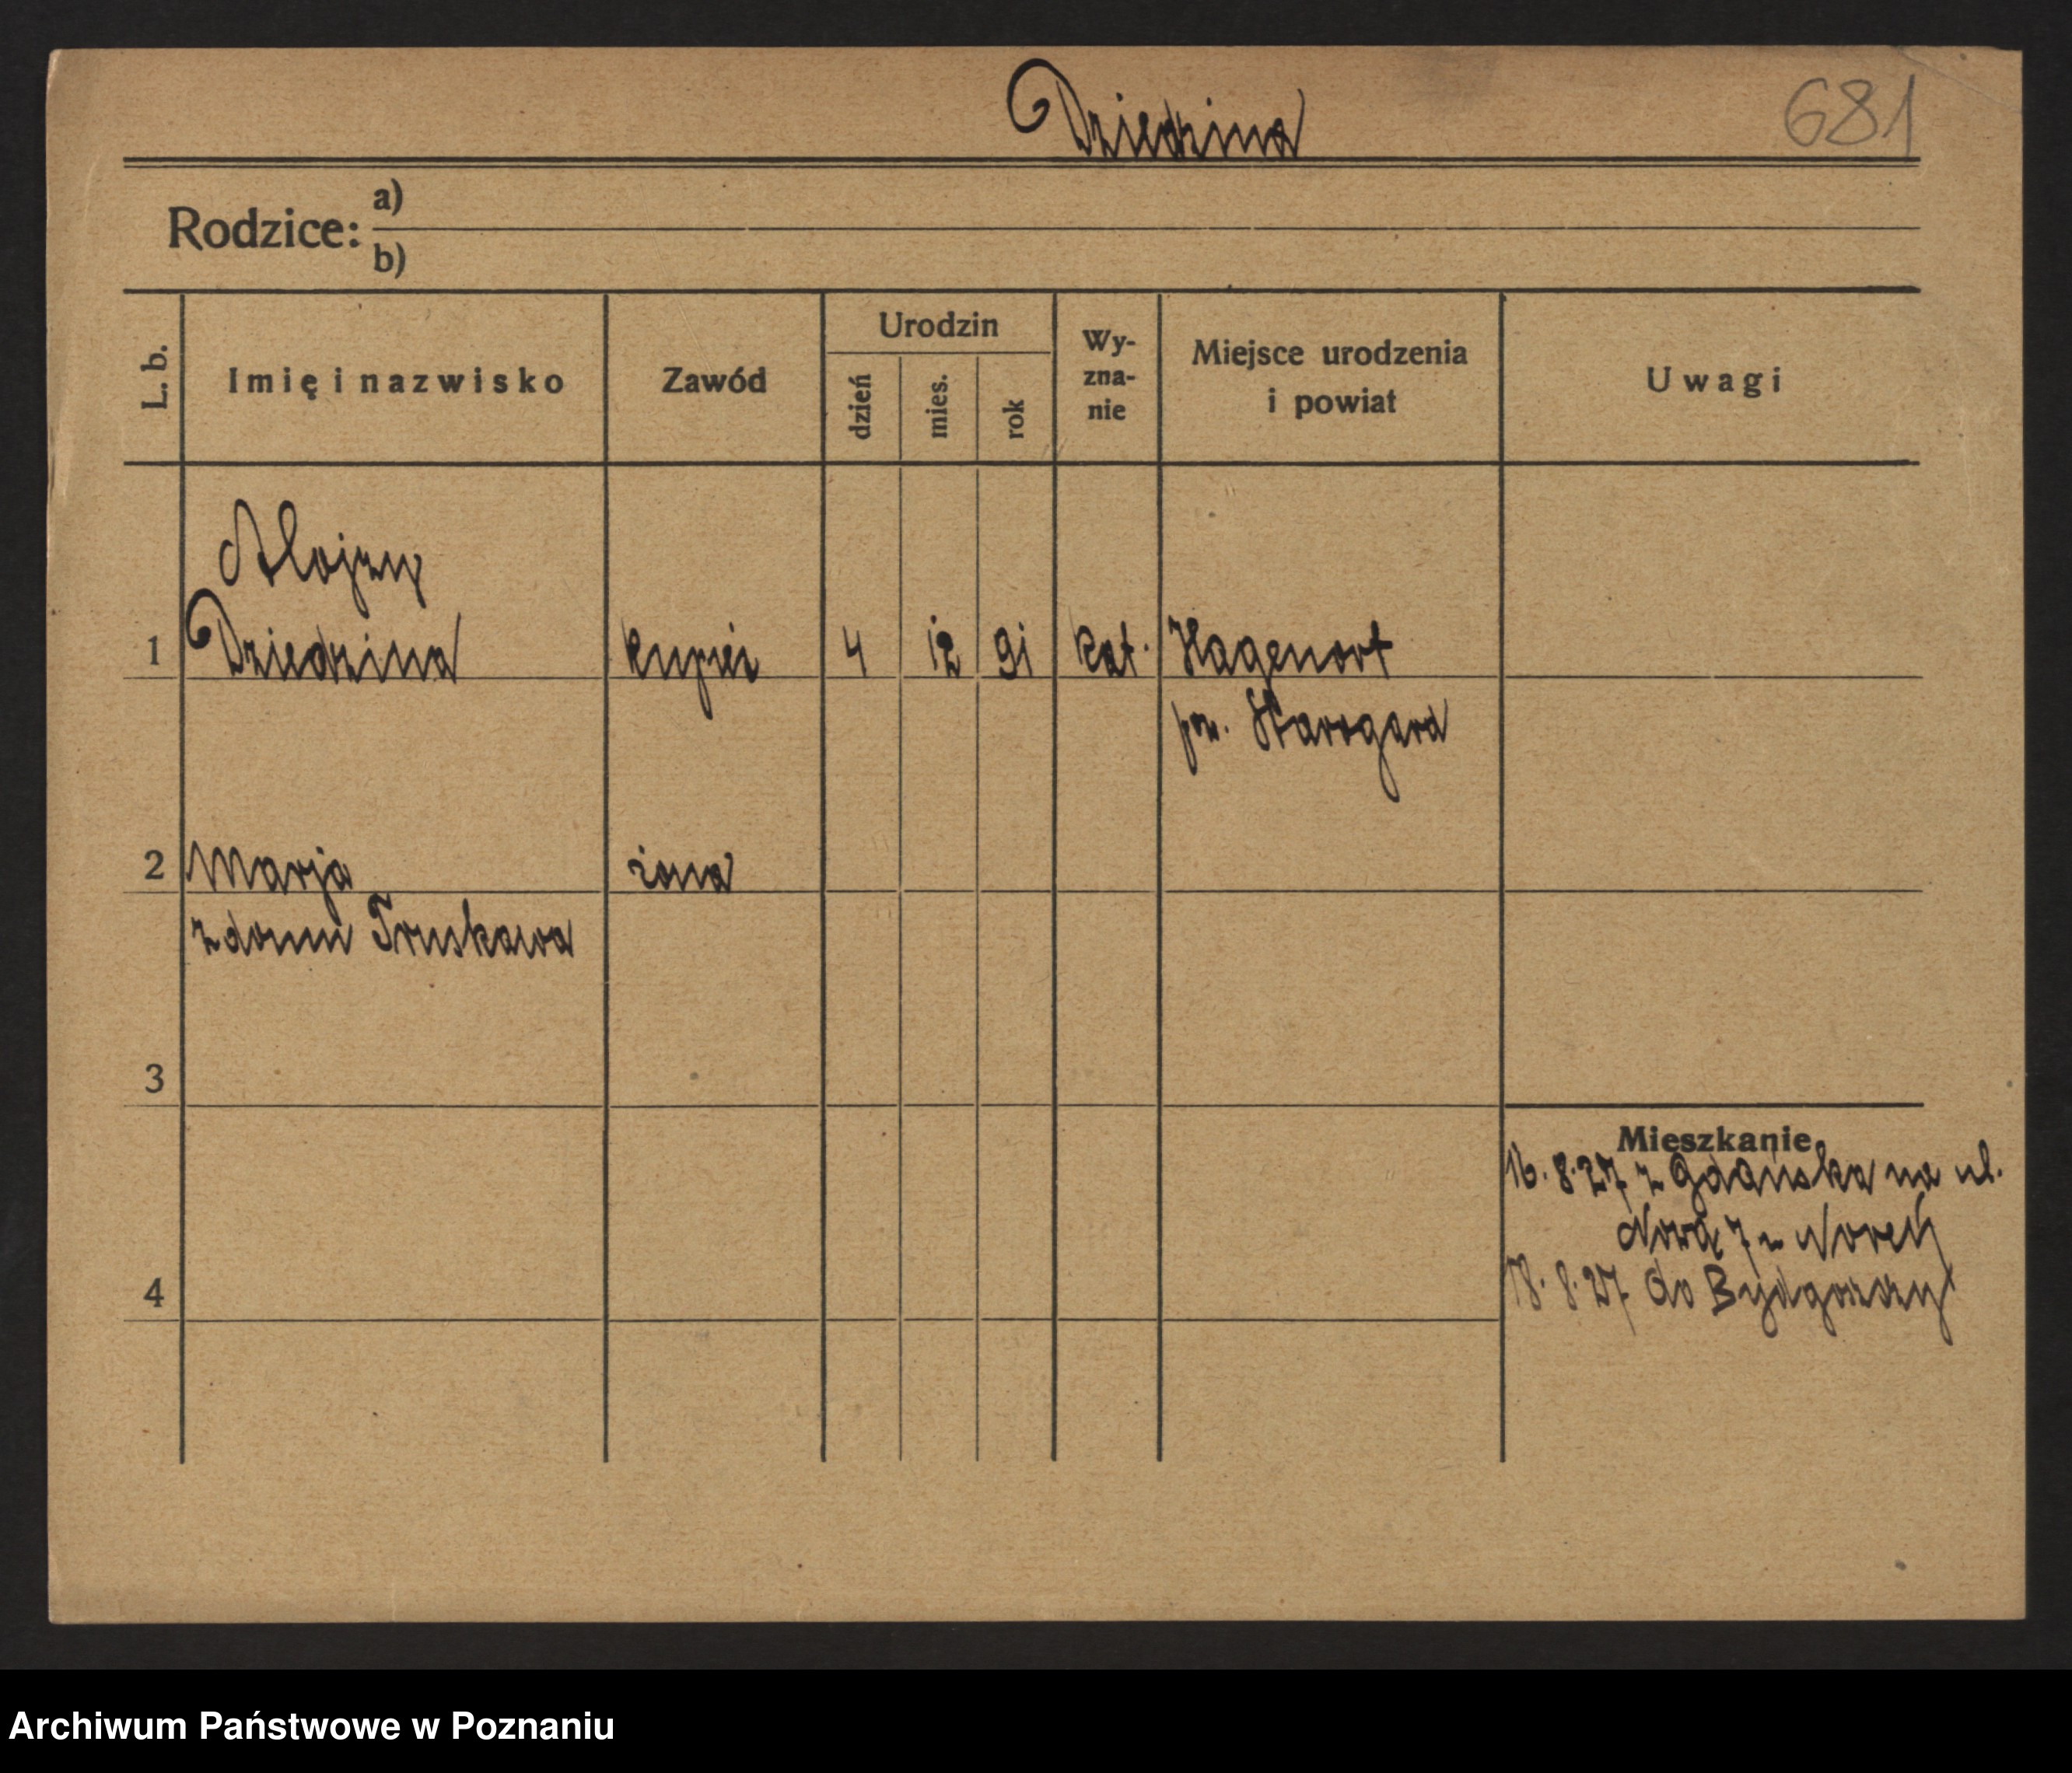 Dziedzina
681
Rodzice: a)
b)
L. b.
Imię i nazwisko
Zawód
Urodzin
dzień
mies.
rok
Wy-
zna-
nie
Miejsce urodzenia
i powiat
Uwagi
Alojzy
1 Dziedzina kupiec 4 12 91 kat. Hagenort
pow. Starogard
2 Marja żona
z domu Truskawa
3
Mieszkanie
16.8.27 z Gdańska na ul.
Nową 7
4
18.8.27 do Bydgoszczy
Archiwum Państwowe w Poznaniu